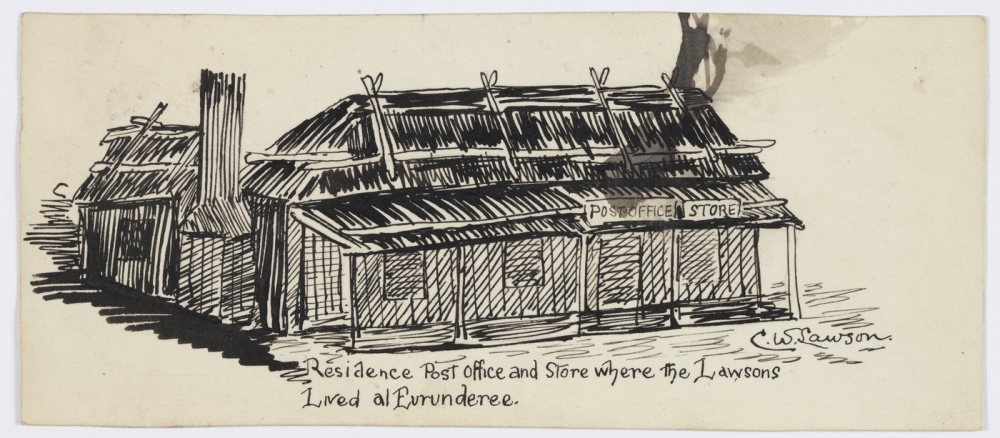 POST OFFICE STORE
C.W. Lawson.
Residence Post Office and Store where the Lawsons
Lived at Eurunderee.